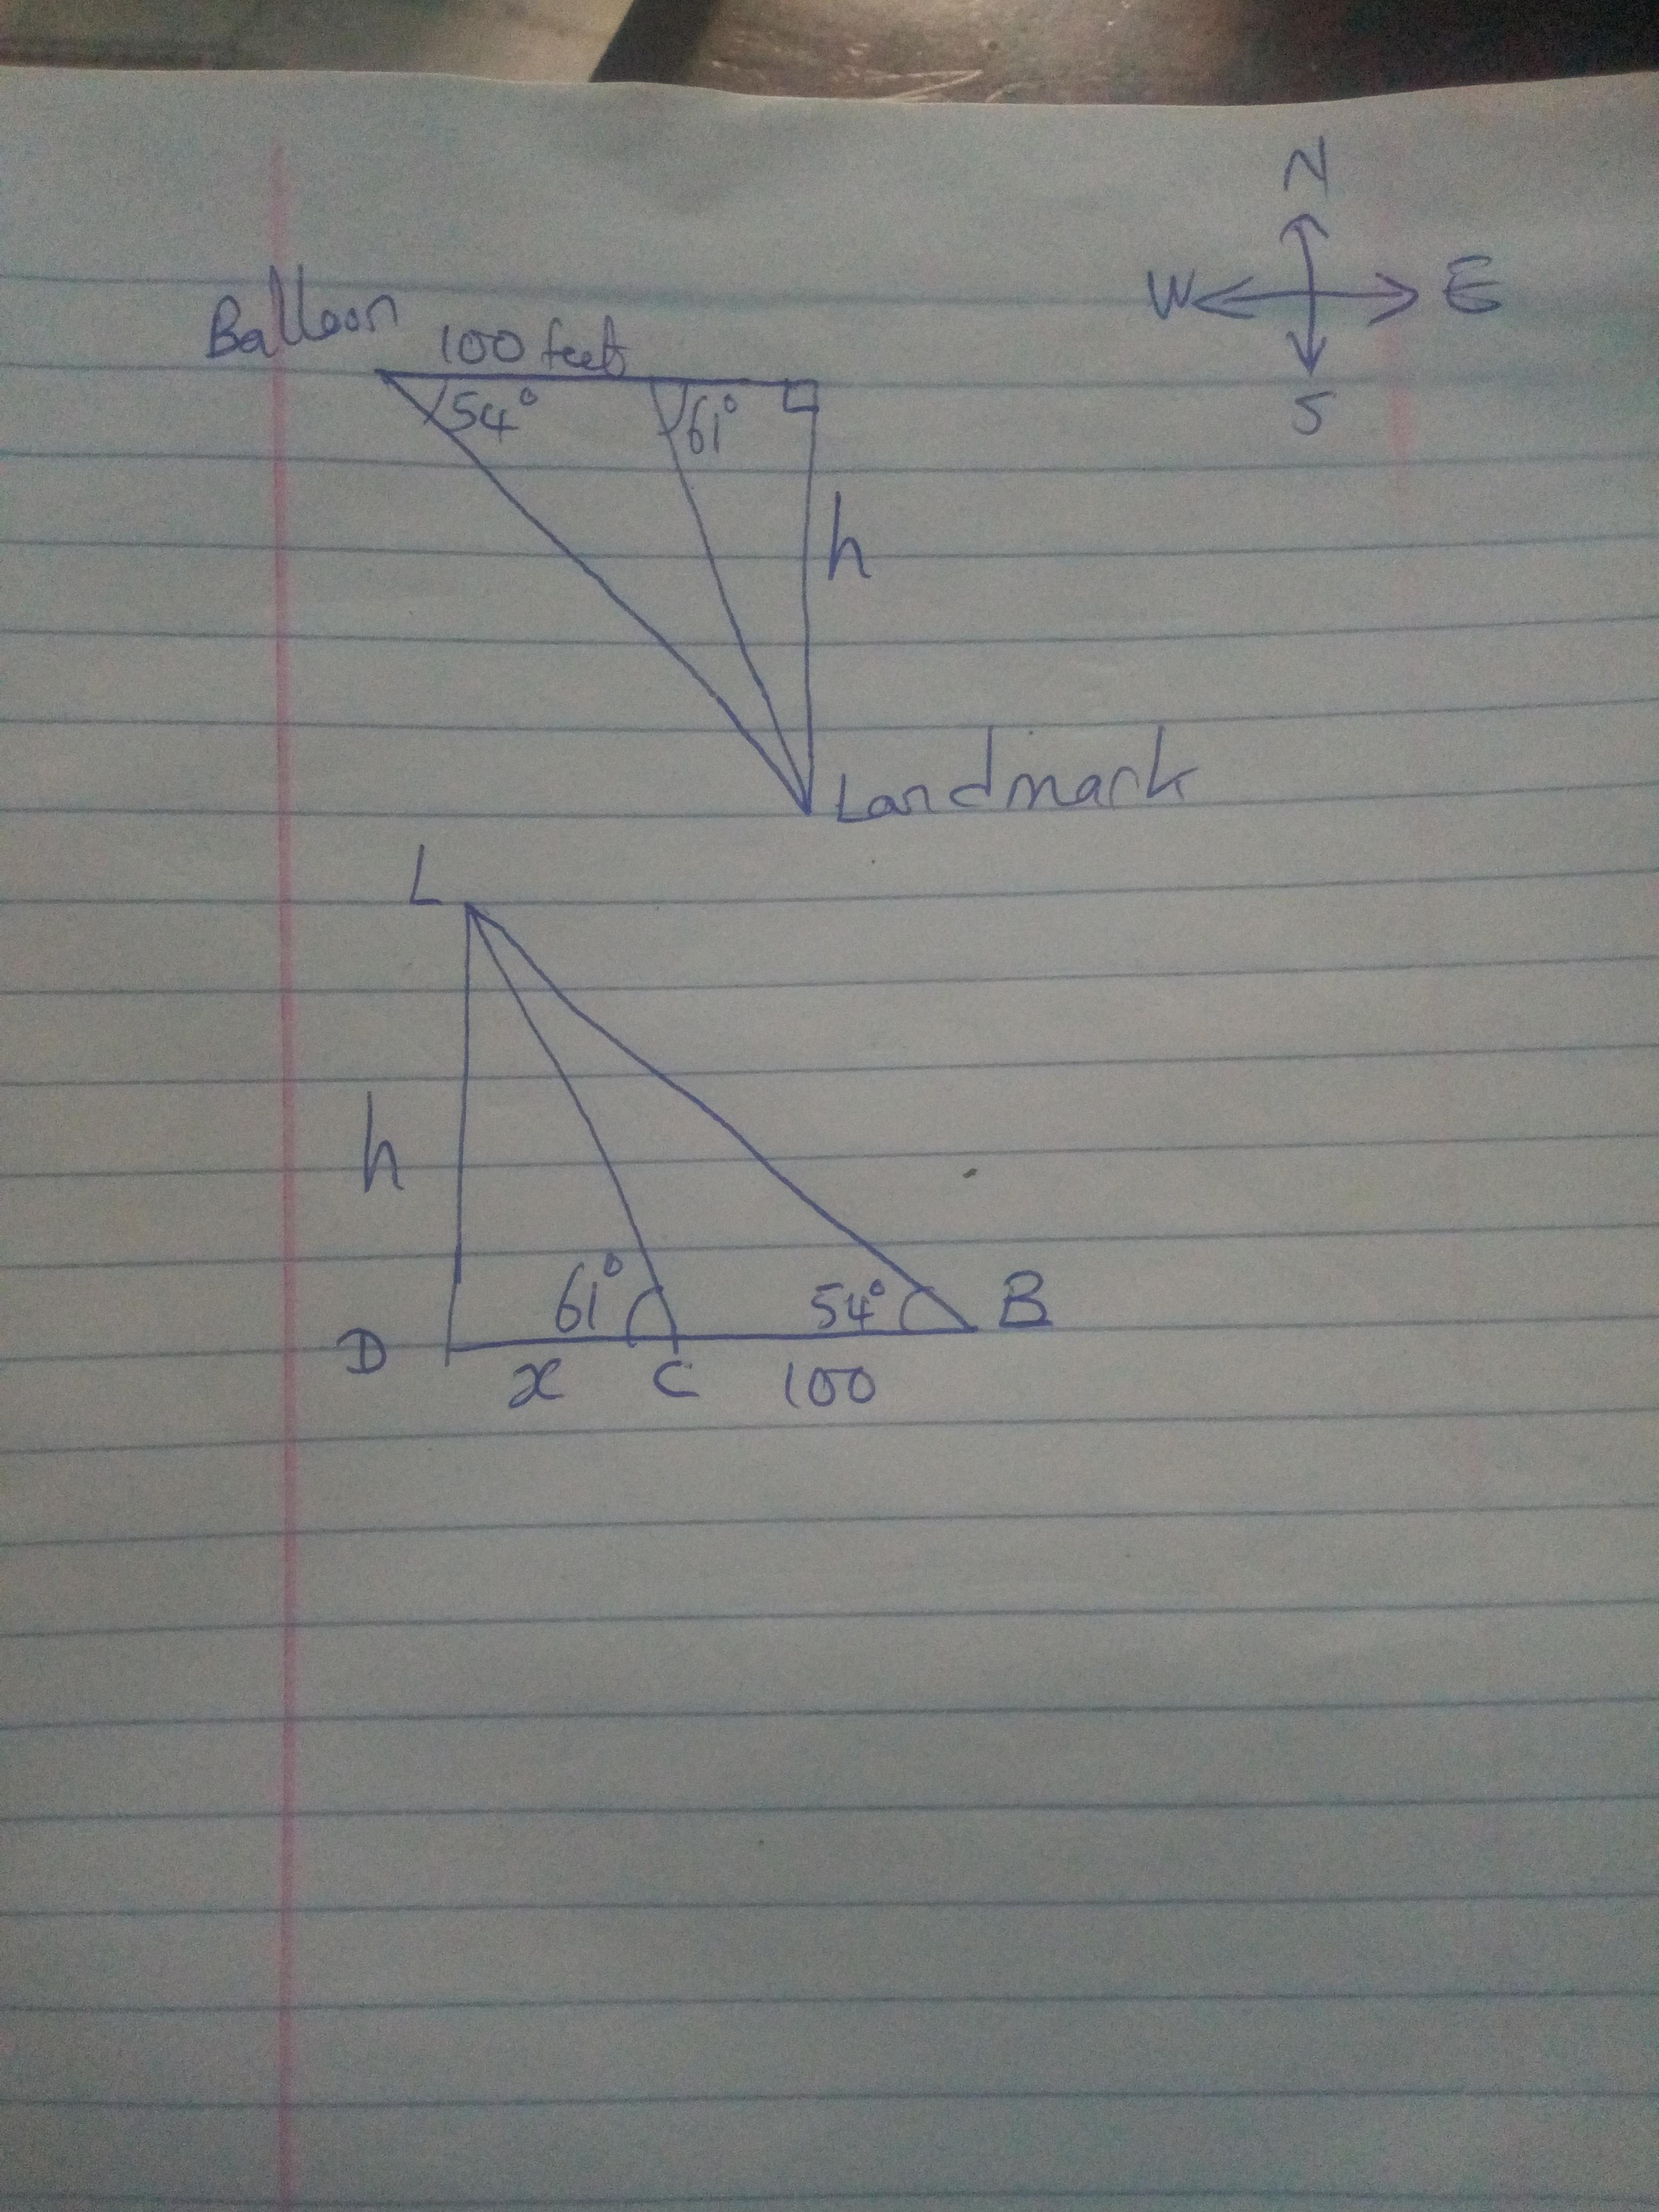 N
W E
S
Balloon 100 feet
54° 61°
h
Landmark
L
h
61° 54° B
D x C 100